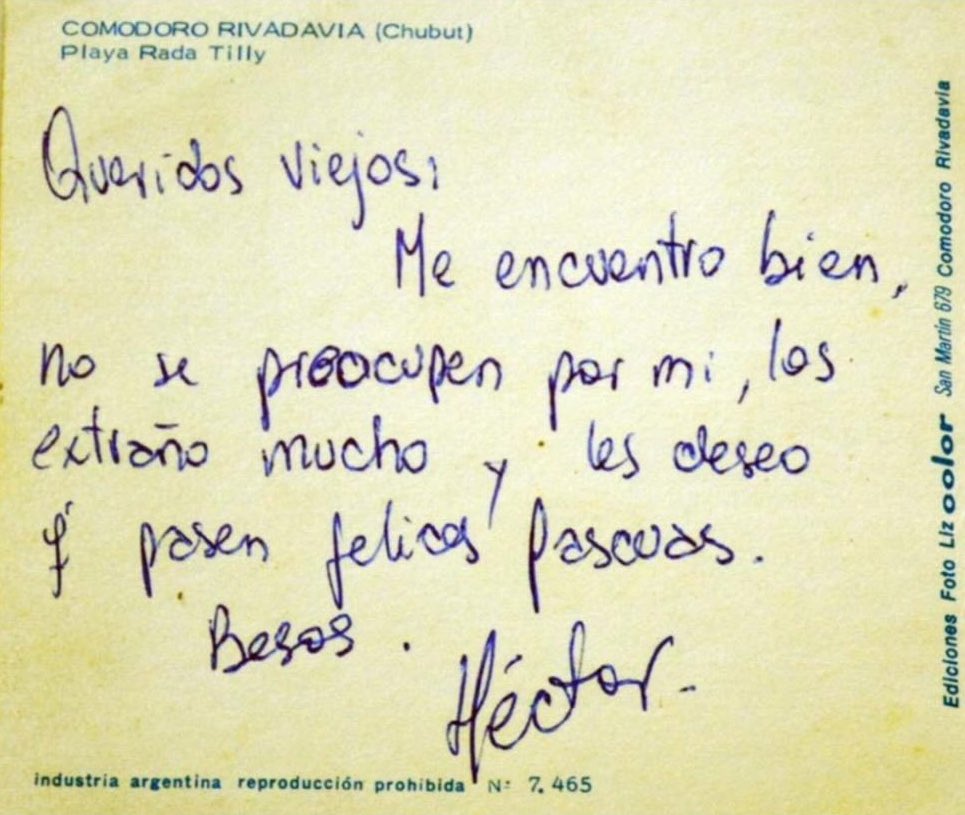 COMODORO RIVADAVIA (Chubut)
Playa Rada Tilly
Queridos viejos:
Me encuentro bien,
no se preocupen por mi, los
extraño mucho y les deseo
q' pasen felices Pascuas.
Besos.
Héctor.
industria argentina reproducción prohibida Nº 7.465
Ediciones Foto Liz color San Martín 679 Comodoro Rivadavia